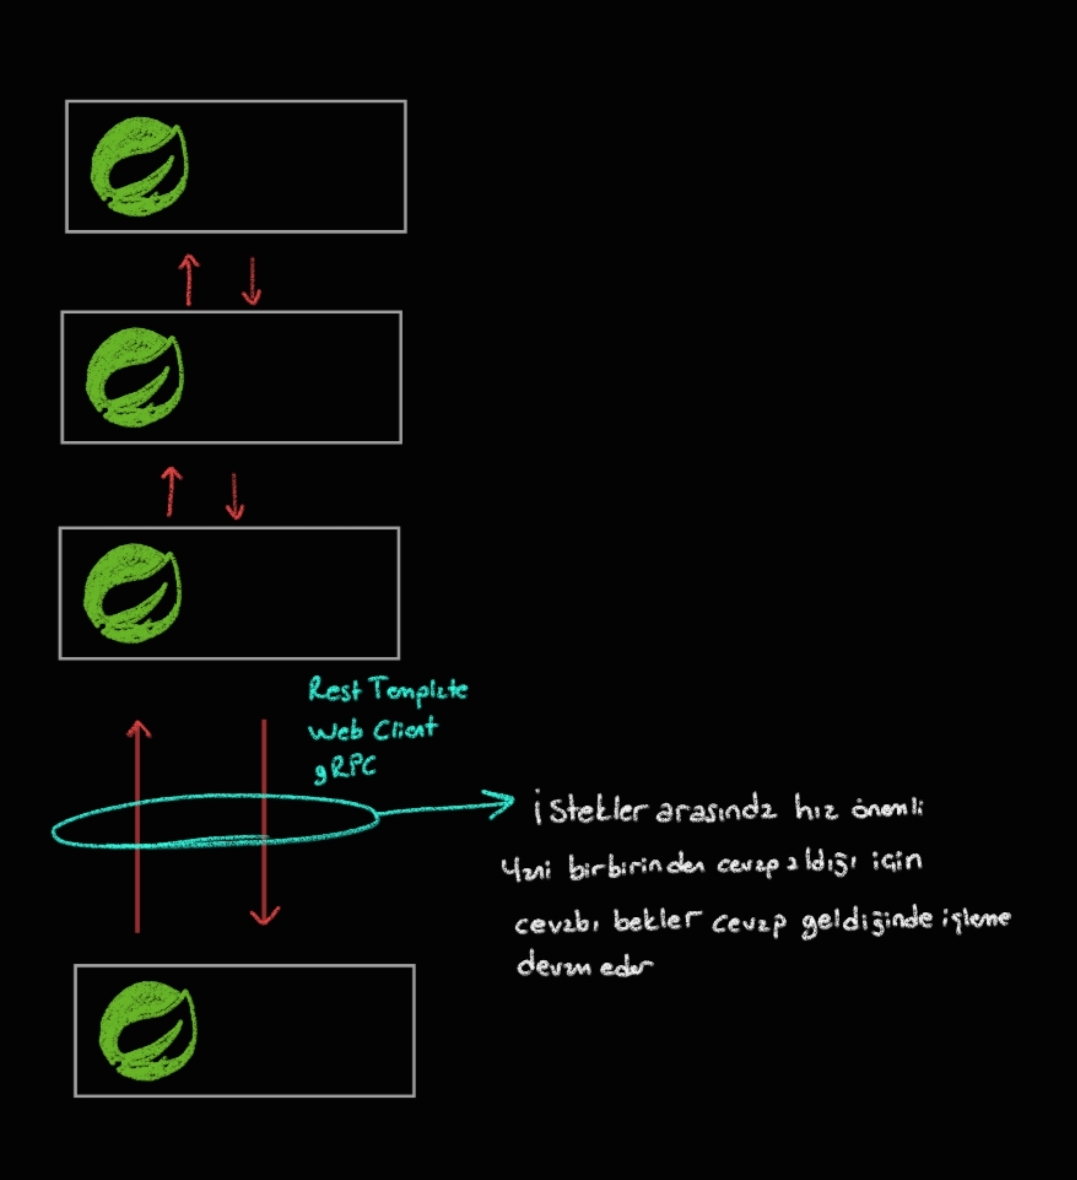 Rest Template
Web Client
gRPC
istekler arasında hız önemli
Yani birbirinden cevap aldığı için
cevabı bekler cevap geldiğinde işleme
devam eder